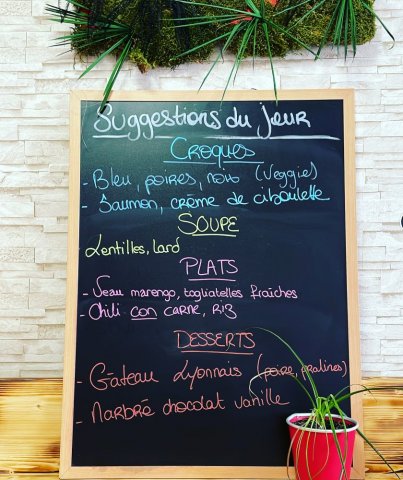 Suggestions du jour
CROQUES
- Bleu, poires, noix (Veggie)
- Saumon, crème de ciboulette
SOUPE
Lentilles, lard
PLATS
- Veau marengo, tagliatelles fraîches
- Chili con CARNE, RIZ
DESSERTS
- Gâteau Lyonnais (poire, pralines)
- Marbré chocolat vanille